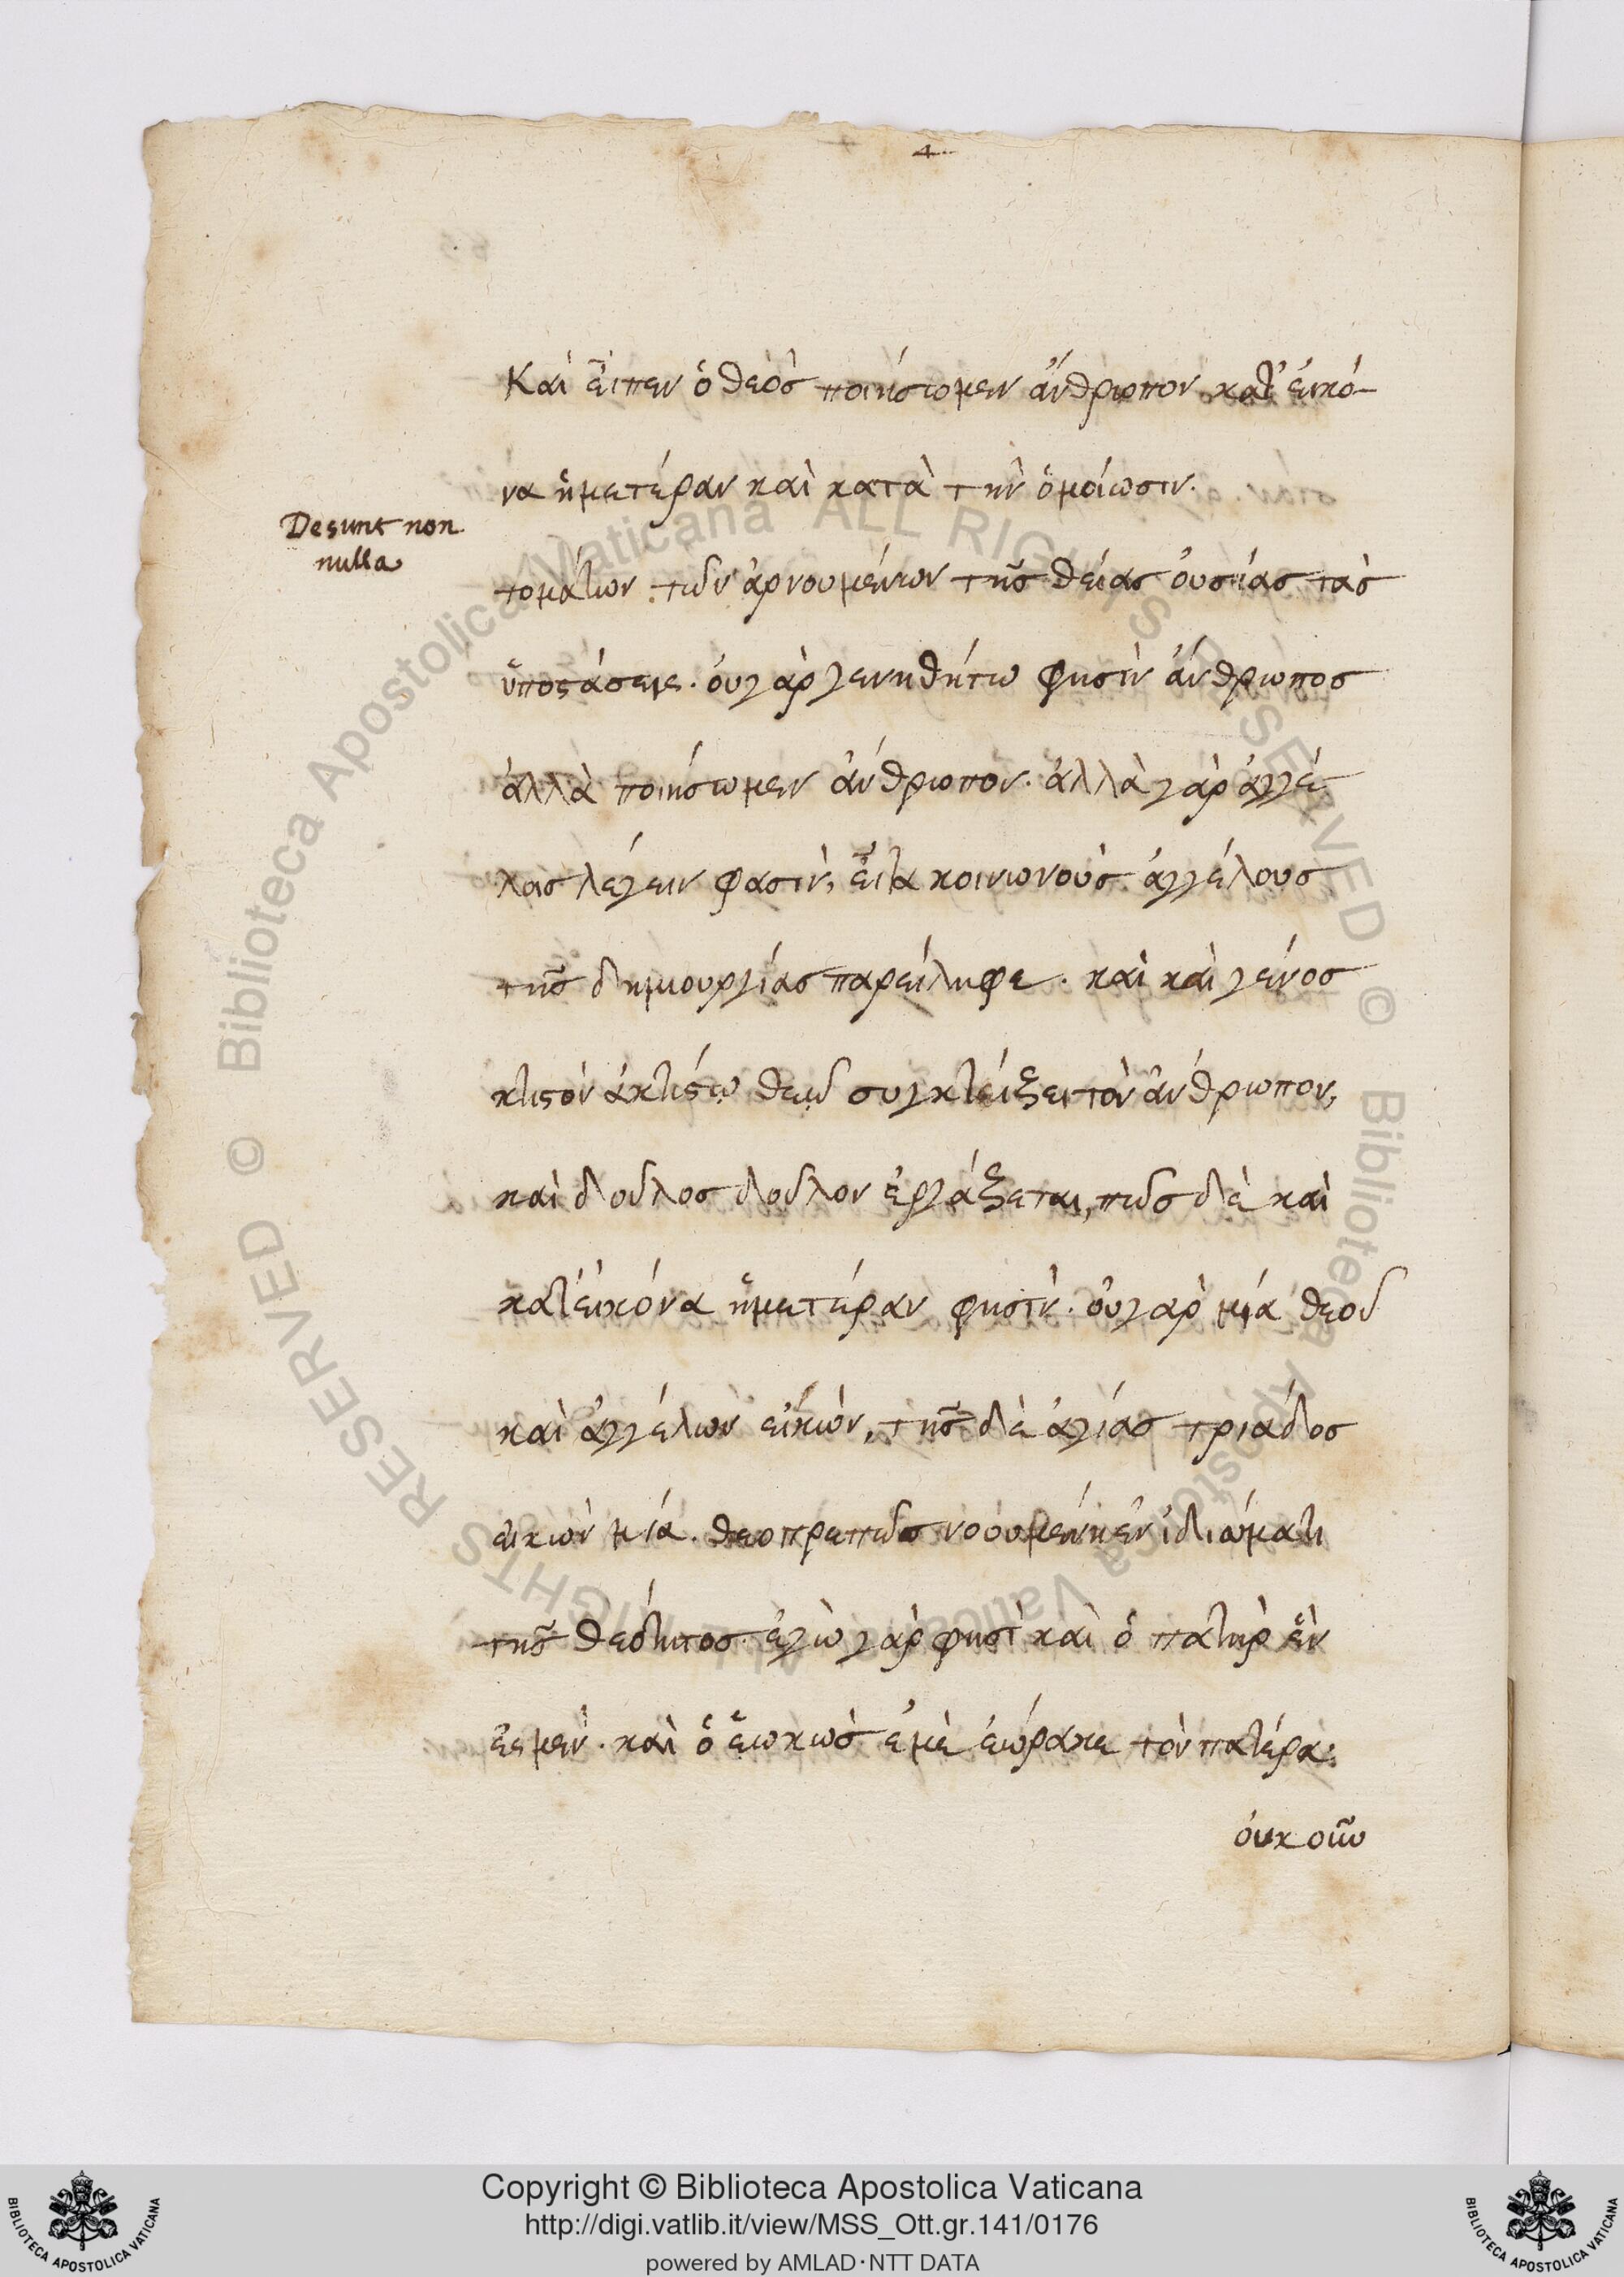 4
Καὶ εἶπεν ὁ θεὸς ποιήσωμεν ἄνθρωπον κατ' εἰκό-
να ἡμετέραν καὶ κατὰ τὴν ὁμοίωσιν.
Desunt non
nulla
τομάτων τῶν ἀρνουμένων τῆς θείας οὐσίας τὰς
ὑποστάσεις. οὐ γὰρ γενηθήτω φησὶν ἄνθρωπος
ἀλλὰ ποιήσωμεν ἄνθρωπον. ἀλλὰ γὰρ ἀγγέ
λοις λέγειν φασὶν, εἶτα κοινωνοὺς ἀγγέλους
τῆς δημιουργίας παρείληφε. καὶ καὶ γένος
κτιστὸν ἀκτίστῳ θεῷ συγκτείξει τὸν ἄνθρωπον,
καὶ δοῦλος δοῦλον ἐργάξεται, πῶς δὲ καὶ
κατ' εἰκόνα ἡμετέραν φησὶν. οὐ γὰρ μία θεοῦ
καὶ ἀγγέλων εἰκὼν, τῆς δὲ ἁγίας τριάδος
εἰκὼν μία. θεοπρεπῶς νοουμένη ἐν ἰδιώματι
τῆς θεότητος. ἐγὼ γὰρ φησὶ καὶ ὁ πατὴρ ἓν
ἐσμεν. καὶ ὁ ἑωκὼς ἐμὲ ἑώρακε τὸν πατέρα.
οὐκοῦν
Copyright © Biblioteca Apostolica Vaticana
http://digi.vatlib.it/view/MSS_Ott.gr.141/0176
powered by AMLAD·NTT DATA
BIBLIOTECA APOSTOLICA VATICANA
BIBLIOTECA APOSTOLICA VATICANA
© Biblioteca Apostolica Vaticana ALL RIGHTS RESERVED © Biblioteca Apostolica Vaticana ALL RIGHTS RESERVED